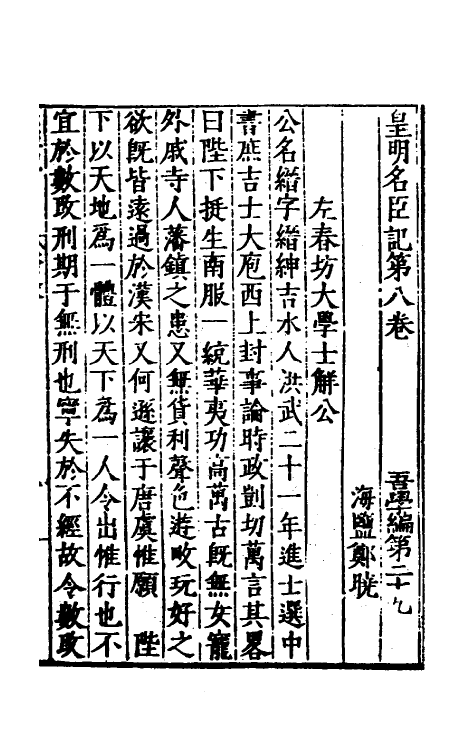 皇明名臣記第八卷 吾學編第二十九
海鹽鄭曉
左春坊大學士解公
公名縉字縉紳吉水人洪武二十一年進士選中
書庶吉士大庖西上封事論時政剴切萬言其畧
曰陛下挺生南服一統華夷功高萬古旣無女寵
外戚寺人藩鎮之患又無貨利聲色遊畋玩好之
欲旣皆遠過於漢宋又何遜讓于唐虞惟願 陛
下以天地爲一體以天下爲一人令出惟行也不
宜於數改刑期于無刑也寧失於不經故令數改